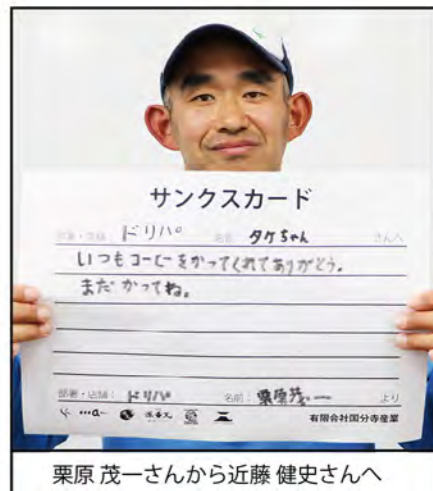 サンクスカード
部署・店舗: ドリパ 名前: タケちゃん さんへ
いつもコーヒーをかってくれてありがとう。
まだかってね。
部署・店舗: ドリパ 名前: 栗原茂一 より
有限会社国分寺産業
栗原 茂一さんから近藤 健史さんへ